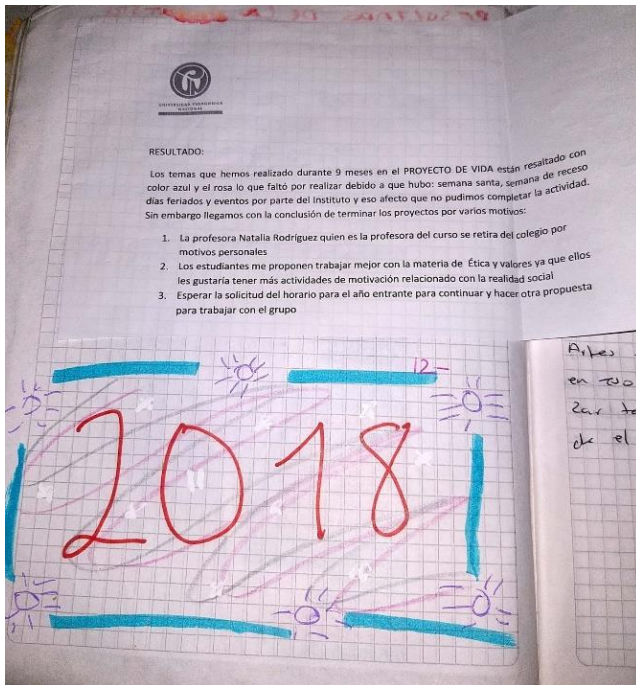 UNIVERSIDAD PEDAGOGICA
NACIONAL
RESULTADO:
Los temas que hemos realizado durante 9 meses en el PROYECTO DE VIDA están resaltado con
color azul y el rosa lo que faltó por realizar debido a que hubo: semana santa, semana de receso
días feriados y eventos por parte del Instituto y eso afecto que no pudimos completar la actividad.
Sin embargo llegamos con la conclusión de terminar los proyectos por varios motivos:
1. La profesora Natalia Rodríguez quien es la profesora del curso se retira del colegio por
motivos personales
2. Los estudiantes me proponen trabajar mejor con la materia de Ética y valores ya que ellos
les gustaría tener más actividades de motivación relacionado con la realidad social
3. Esperar la solicitud del horario para el año entrante para continuar y hacer otra propuesta
para trabajar con el grupo
12-
2018
Artes
en
zar
de el